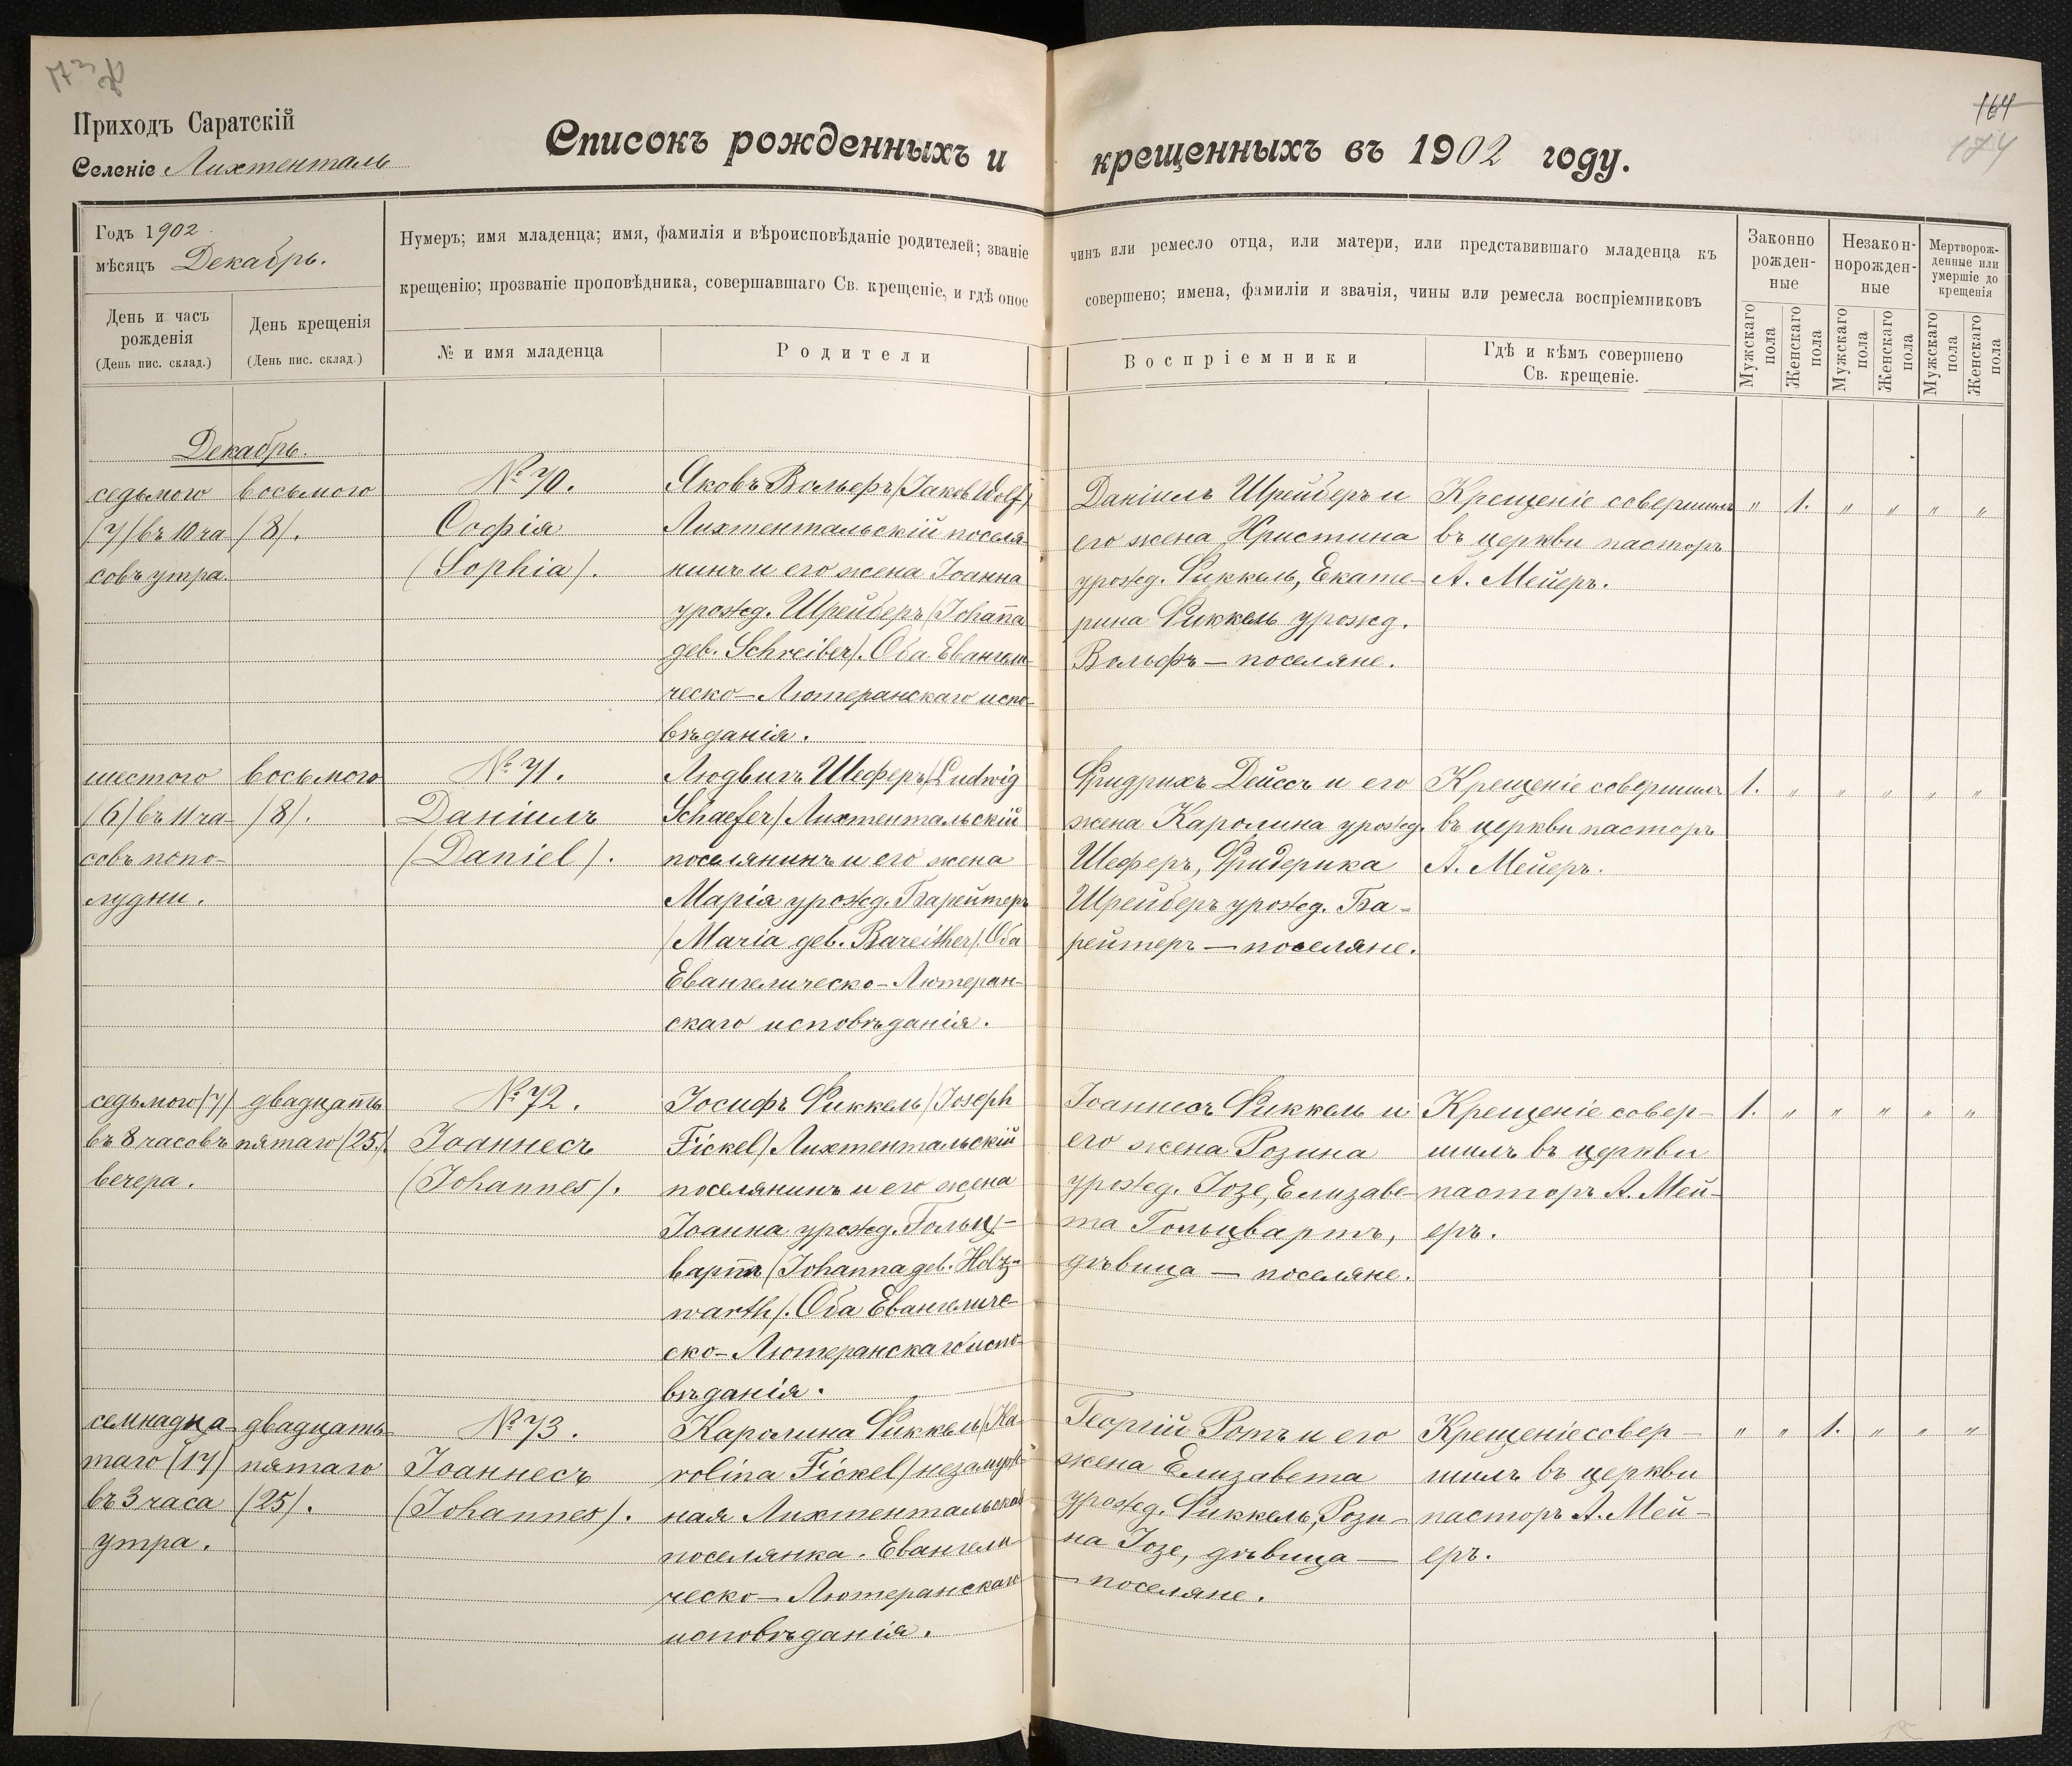 164
174
Приходъ Саратскій
Селеніе Лихтенталь
Списокъ рожденныхъ и крещенныхъ въ 1902 году.
Годъ 1902.
мѣсяцъ Декабрь.
День и часъ
рожденія
(День пис. склад.)
День крещенія
(День пис. склад.)
Нумеръ; имя младенца; имя, фамилія и вѣроисповѣданіе родителей; званіе
чинъ или ремесло отца, или матери, или представившаго младенца къ
крещенію; прозваніе проповѣдника, совершавшаго Св. крещеніе, и гдѣ оное
совершено; имена, фамиліи и званія, чины или ремесла воспріемниковъ
№ и имя младенца
Родители
Воспріемники
Гдѣ и кѣмъ совершено
Св. крещеніе.
Законно
рожден-
ные
Незакон-
норожден-
ные
Мертворож-
денные или
умершіе до
крещенія
Мужскаго
пола
Женскаго
пола
Мужскаго
пола
Женскаго
пола
Мужскаго
пола
Женскаго
пола
Декабрь.
седьмого
/7/ въ 10 ча
совъ утра.
восьмого
/8/.
№ 70.
Софія
(Sophia).
Яковъ Вольфъ /Jakob Wolf/
Лихтентальскій поселя-
нинъ и его жена Іоанна
урожд. Шрейберъ /Johanna
geb. Schreiber/. Оба Евангели-
ческо-Лютеранскаго испо-
вѣданія.
Даніилъ Шрейберъ и
его жена Христина
урожд. Фиккель, Екате-
рина Фиккель урожд.
Вольфъ — поселяне.
Крещеніе совершилъ
въ церкви пасторъ
А. Мейеръ.
" 1. " " " "
шестого
/6/ въ 11 ча-
совъ попо-
лудни.
восьмого
/8/.
№ 71.
Даніилъ
(Daniel).
Людвигъ Шеферъ /Ludwig
Schaefer/ Лихтентальскій
поселянинъ и его жена
Марія урожд. Барейтеръ
/Maria geb. Bareither/. Оба
Евангелическо-Лютеран-
скаго исповѣданія.
Фридрихъ Дейссъ и его
жена Каролина урожд.
Шеферъ, Фридерика
Шрейберъ урожд. Ба-
рейтеръ — поселяне.
Крещеніе совершилъ
въ церкви пасторъ
А. Мейеръ.
1. " " " " "
седьмого /7/
въ 8 часовъ
вечера.
двадцать
пятаго (25).
№ 72.
Іоаннесъ
(Johannes).
Іосифъ Фиккель /Joseph
Fickel/ Лихтентальскій
поселянинъ и его жена
Іоанна урожд. Гольц-
вартъ (Johanna geb. Holz-
warth/. Оба Евангеличе-
ско-Лютеранскаго испо-
вѣданія.
Іоаннесъ Фиккель и
его жена Розина
урожд. Іозе, Елизаве-
та Гольцвартъ,
дѣвица — поселяне.
Крещеніе совер-
шилъ въ церкви
пасторъ А. Мей-
еръ.
1. " " " " "
семнадца-
таго (17)
въ 3 часа
утра.
двадцать
пятаго
(25).
№ 73.
Іоаннесъ
(Johannes).
Каролина Фиккель /Ka-
rolina Fickel/ незамуж-
ная Лихтентальская
поселянка. Евангели
ческо-Лютеранскаго
исповѣданія.
Георгій Ротъ и его
жена Елизавета
урожд. Фиккель, Рози-
на Іозе, дѣвица —
— поселяне.
Крещеніе совер-
шилъ въ церкви
пасторъ А. Мей-
еръ.
" " 1. " " "